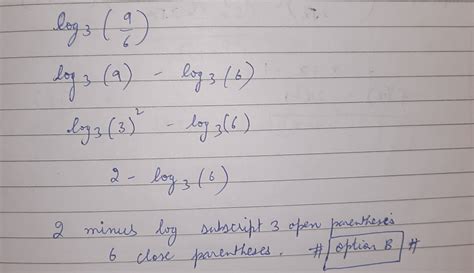 log₃ (9/6)
log₃ (9) - log₃ (6)
log₃ (3)² - log₃(6)
2 - log₃ (6)
2 minus log subscript 3 open parentheses
6 close parentheses. # option B #